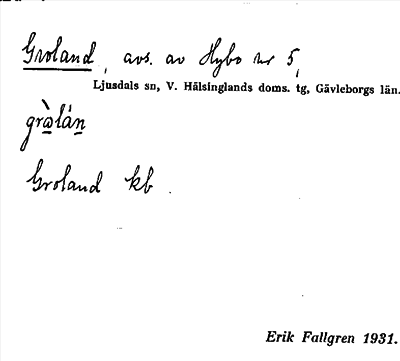 Groland, avs. av Hybo nr 5,
Ljusdals sn, V. Hälsinglands doms. tg, Gävleborgs län.
grὰlán
Groland kb.
Erik Fallgren 1931.